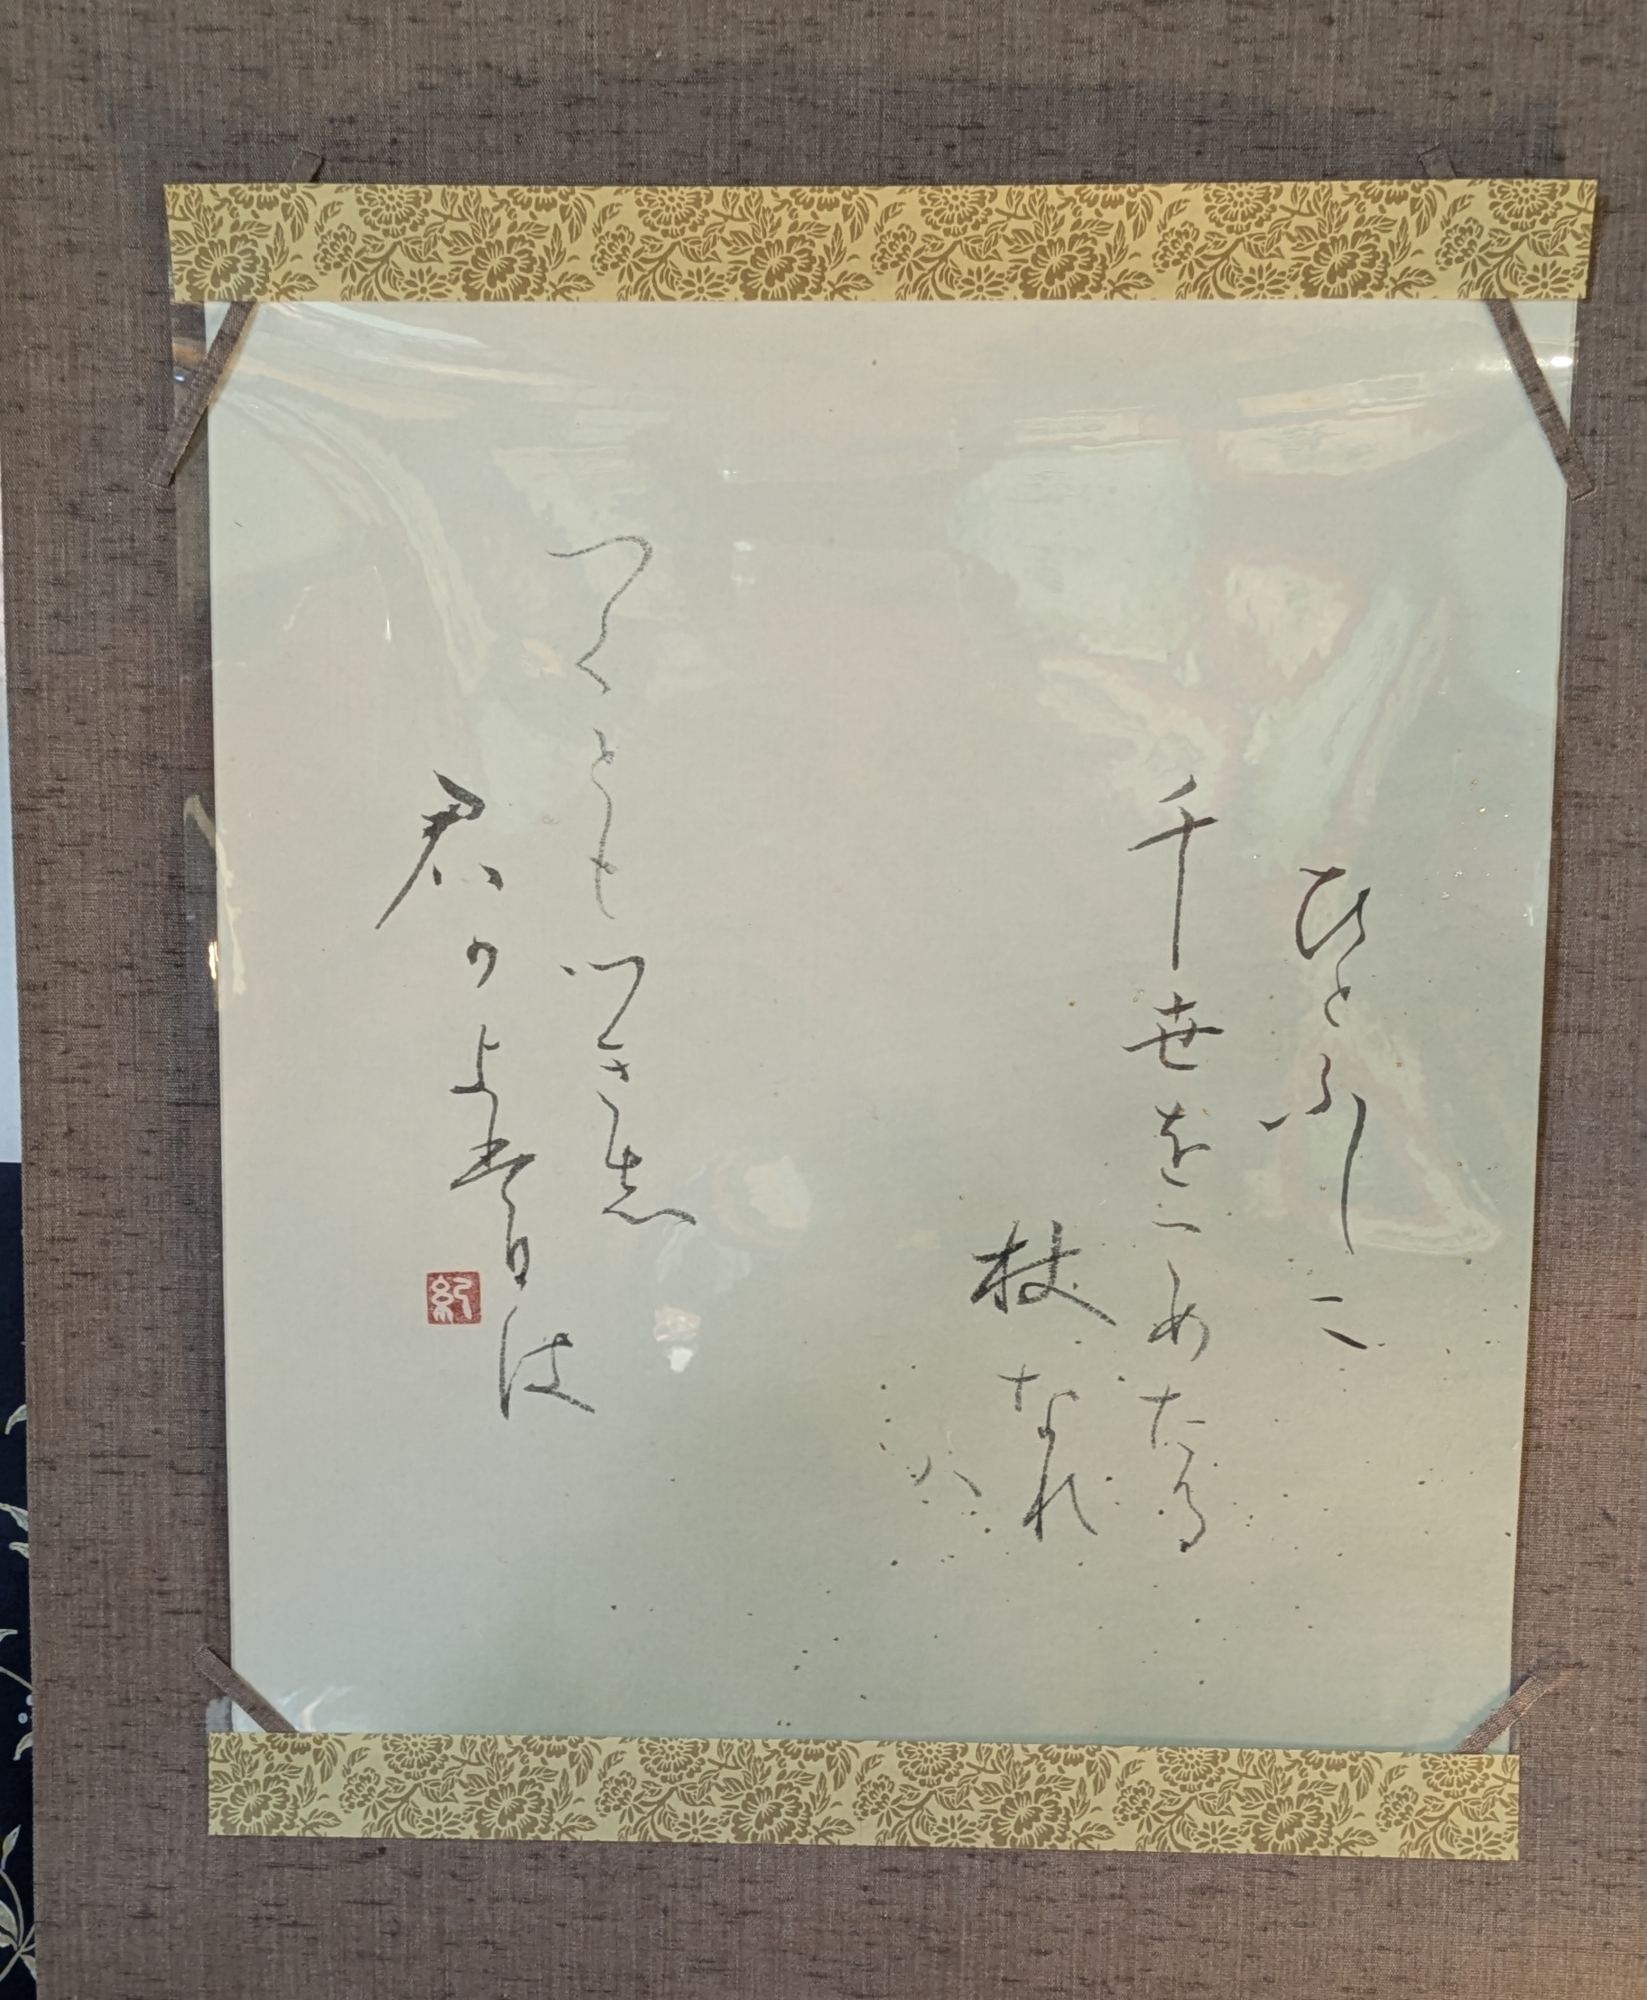 ひとふしに
千世をこめたる
杖なれ
八
つくともつきし
君かよ者ひは
紀